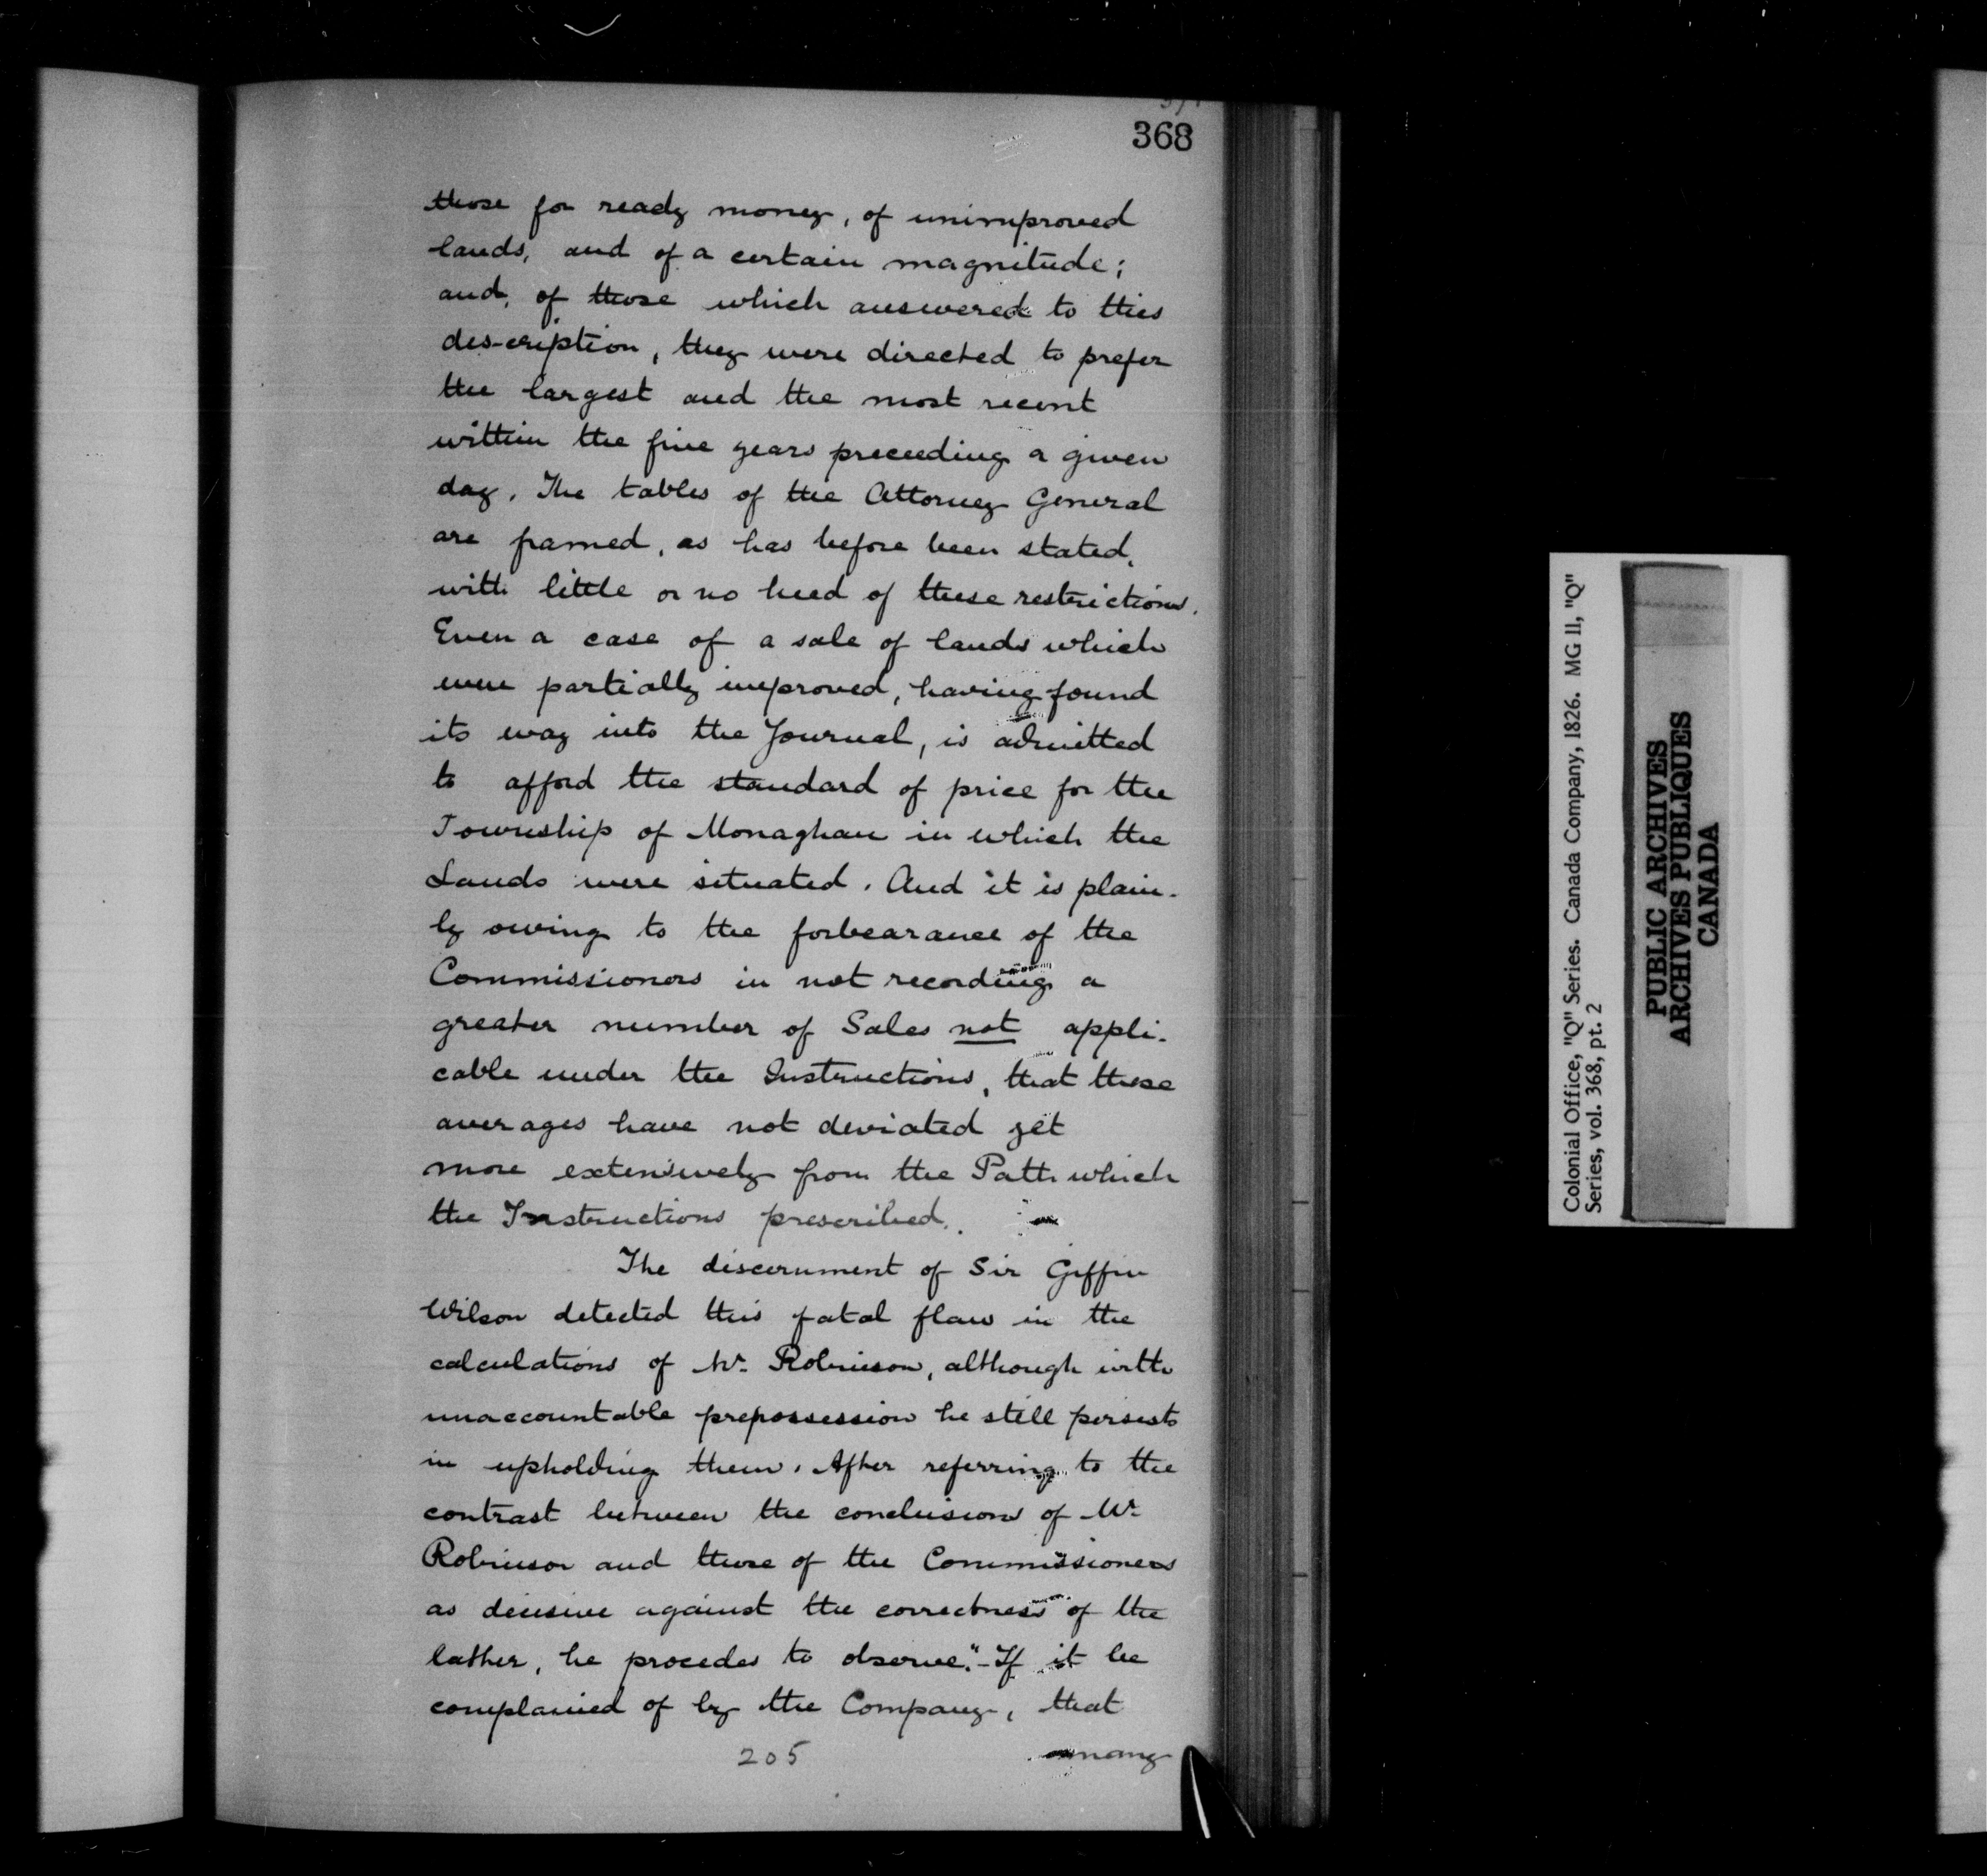 368
those for ready money, of unimproved
lands, and of a certain magnitude;
and, of those which answered to this
des-cription, they were directed to prefer
the largest and the most recent
within the five years preceeding a given
day. The tables of the Attorney General
are framed, as has before been stated,
with little or no heed of these restrictions.
Even a case of a sale of lands which
were partially improved, having found
its way into the Journal, is admitted
to afford the standard of price for the
Township of Monaghan in which the
Lands were situated. And it is plain-
ly owing to the forbearance of the
Commissioners in not recording a
greater number of Sales not appli-
cable under the Instructions, that these
averages have not deviated yet
more extensively from the Path which
the Instructions prescribed.
The discernment of Sir Giffin
Wilson detected this fatal flaw in the
calculations of Mr. Robinson, although with
unaccountable prepossession he still persists
in upholding them. After referring to the
contrast between the conclusions of Mr.
Robinson and those of the Commissioners
as decisive against the correctness of the
latter, he procedes to observe. "-If it be
complained of by the Company, that
205
many
Colonial Office, "Q" Series. Canada Company, 1826. MG 11, "Q"
Series, vol. 368, pt. 2
PUBLIC ARCHIVES
ARCHIVES PUBLIQUES
CANADA